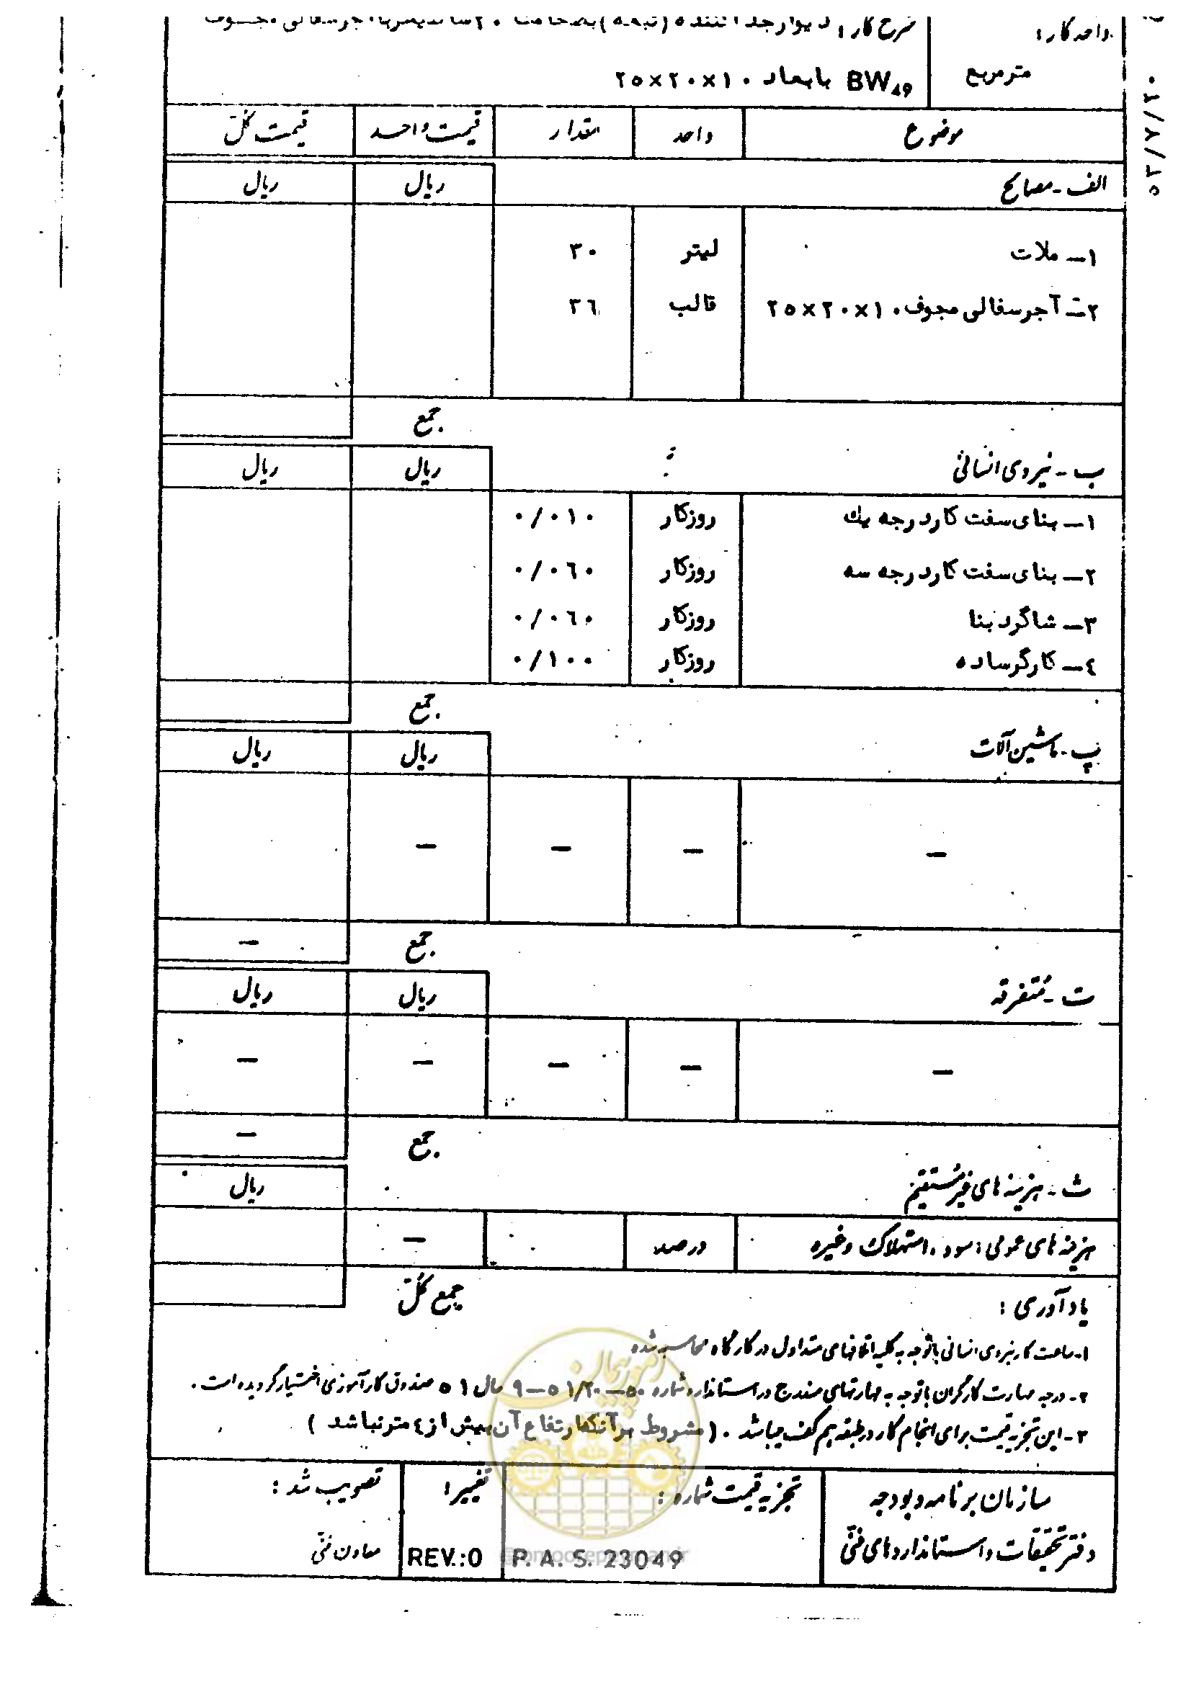 واحد کار : شرح کار : دیوار جدا کننده (تیغه) بضخامت ۲۰ سانتیمتر با آجر سفالی مجوف
متر مربع BW49 با بعاد ۱۰×۲۰×۲۵
۵۳/۷/۳۰
موضوع واحد مقدار قیمت واحد قیمت کل
الف - مصالح ریال ریال
۱ــ ملات لیتر ۳۰
۲ــ آجر سفالی مجوف ۱۰×۲۰×۲۵ قالب ۳٦
جمع
ب - نیروی انسانی ریال ریال
۱ــ بنای سفت کار درجه یك روزکار ۰/۰۱۰
۲ــ بنای سفت کار درجه سه روزکار ۰/۰٦۰
۳ــ شاگرد بنا روزکار ۰/۰٦۰
٤ــ کارگر ساده روزکار ۰/۱۰۰
جمع
پ - ماشین آلات ریال ریال
— — — —
جمع —
ت - متفرقه ریال ریال
— — — — —
جمع —
ث - هزینه های غیر مستقیم ریال
هزینه های عمومی ، سود ، استهلاک وغیره درصد —
جمع کل
یادآوری :
۱- ساعت کار نیروی انسانی باتوجه به کلیه اتلافهای متداول در کارگاه محاسبه شده
۲- درجه مهارت کارگران باتوجه به مهارتهای مندرج در استاندارد شماره ۵۰—۵۱/۲۰—۹ سال ۵۱ صندوق کارآموزی اختیار گردیده است .
۳- این تجزیه قیمت برای انجام کار در طبقه هم کف میباشد . ( مشروط بر آنکه ارتفاع آن بیش از ٤ متر نباشد )
سازمان برنامه و بودجه تجزیه قیمت شماره : تغییر : تصویب شد :
دفتر تحقیقات و استانداردهای فنی P. A. S. 23049 REV.:0 معاون فنی